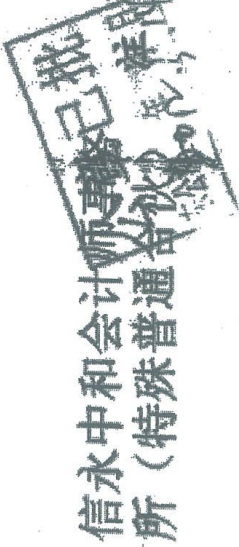 信永中和会计师事务
所（特殊普通合伙）
已批